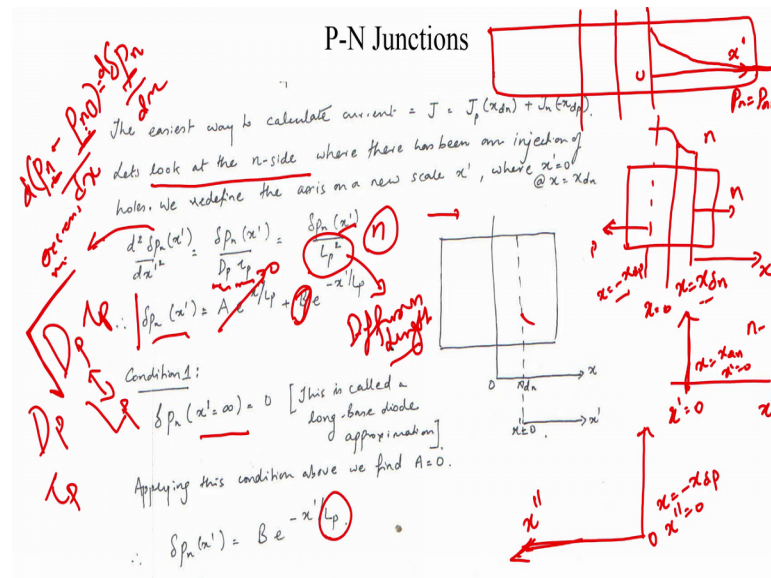 P-N Junctions
The easiest way to calculate current = J = Jp(xdn) + Jn(-xdp).
Lets look at the n-side where there has been an injection of
holes. We redefine the axis on a new scale x', where x'=0
@ x = xdn
d²δpn(x')/dx'² = δpn(x')/Dp τp = δpn(x')/Lp²
n
∴ δpn(x') = A e^x'/Lp + B e^-x'/Lp
Diffusion
Length
Condition 1:
δpn(x'=∞) = 0 [This is called a
long-base diode
approximation]
Applying this condition above we find A=0.
∴ δpn(x') = B e^-x'/Lp.
d(pn - pno)/dx = dδpn/dx
Dp τp
Dp Lp
τp
0 xdn x
x'=0 x'
0 x'
n
p n
x=-xdp x=0 x=xdn x
n-
x=xdn
x'=0
x'=0 x
x=-xdp
x'' 0 x''=0